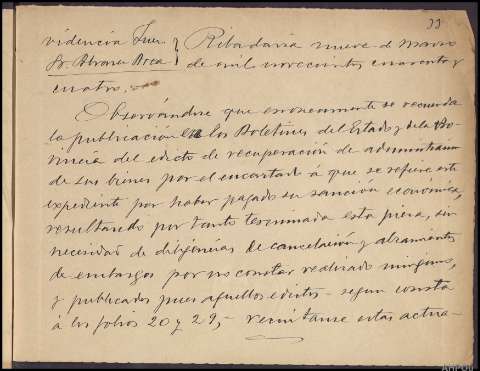 33
videncia Juez } Ribadavia nueve de Marzo
Sr. Alvarez Roca } de mil novecientos cuarenta y
cuatro.
Observándose que erroneamente se recuerda
la publicación en los Boletines del Estado y de la Pro-
vincia del edicto de recuperación de administración
de sus bienes por el encartado á que se refiere este
expediente por haber pagado su sanción económica,
resultando por tanto terminada esta pieza, sin
necesidad de diligencias de cancelación y alzamientos
de embargos por no constar realizado ninguno,
y publicados pues aquellos edictos - segun consta
á los folios 20 y 29, - remitanse estas actua-